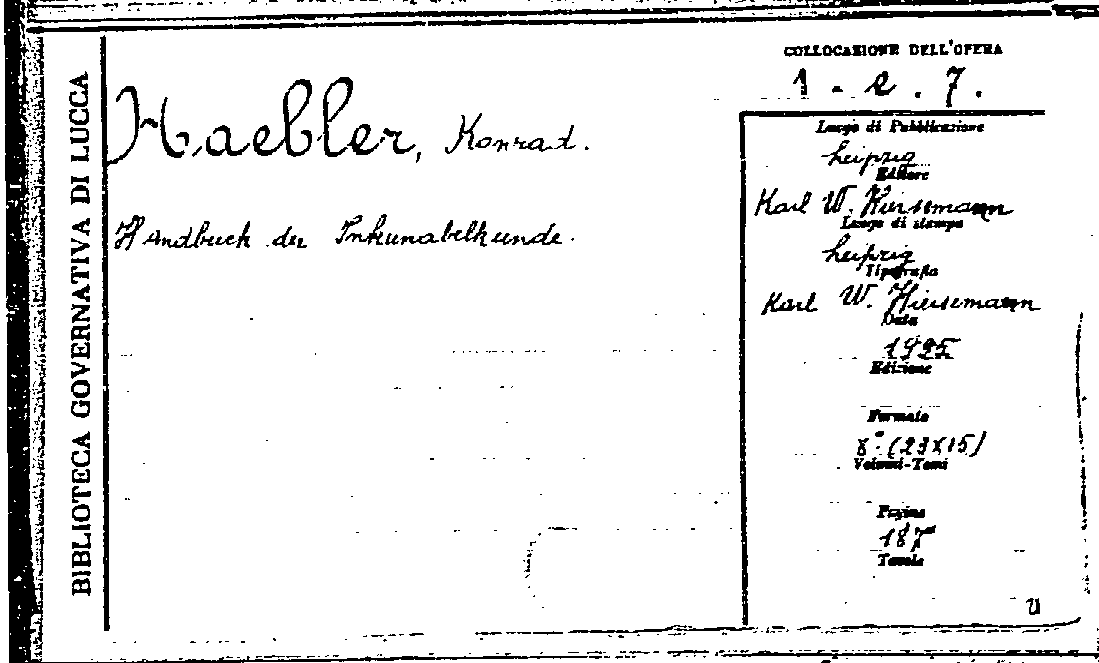 BIBLIOTECA GOVERNATIVA DI LUCCA
Haebler, Konrad.
Handbuch der Inkunabelkunde.
COLLOCAZIONE DELL'OPERA
1 - e . 7 .
Luogo di Pubblicazione
Leipzig
Editore
Karl W. Hiersemann
Luogo di stampa
Leipzig
Tipografia
Karl W. Hiersemann
Data
1925
Edizione
Formato
8° (23x15)
Volumi-Tomi
Pagine
187
Tavole